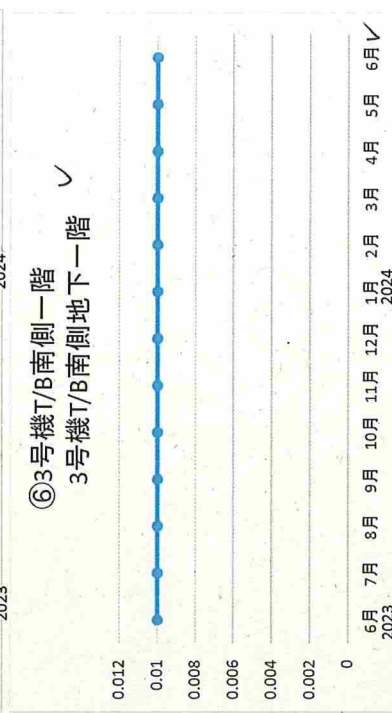 2023
2024
⑥3号機T/B南側一階
3号機T/B南側地下一階
0.012
0.01
0.008
0.006
0.004
0.002
0
6月 7月 8月 9月 10月 11月 12月 1月 2月 3月 4月 5月 6月
2023 2024